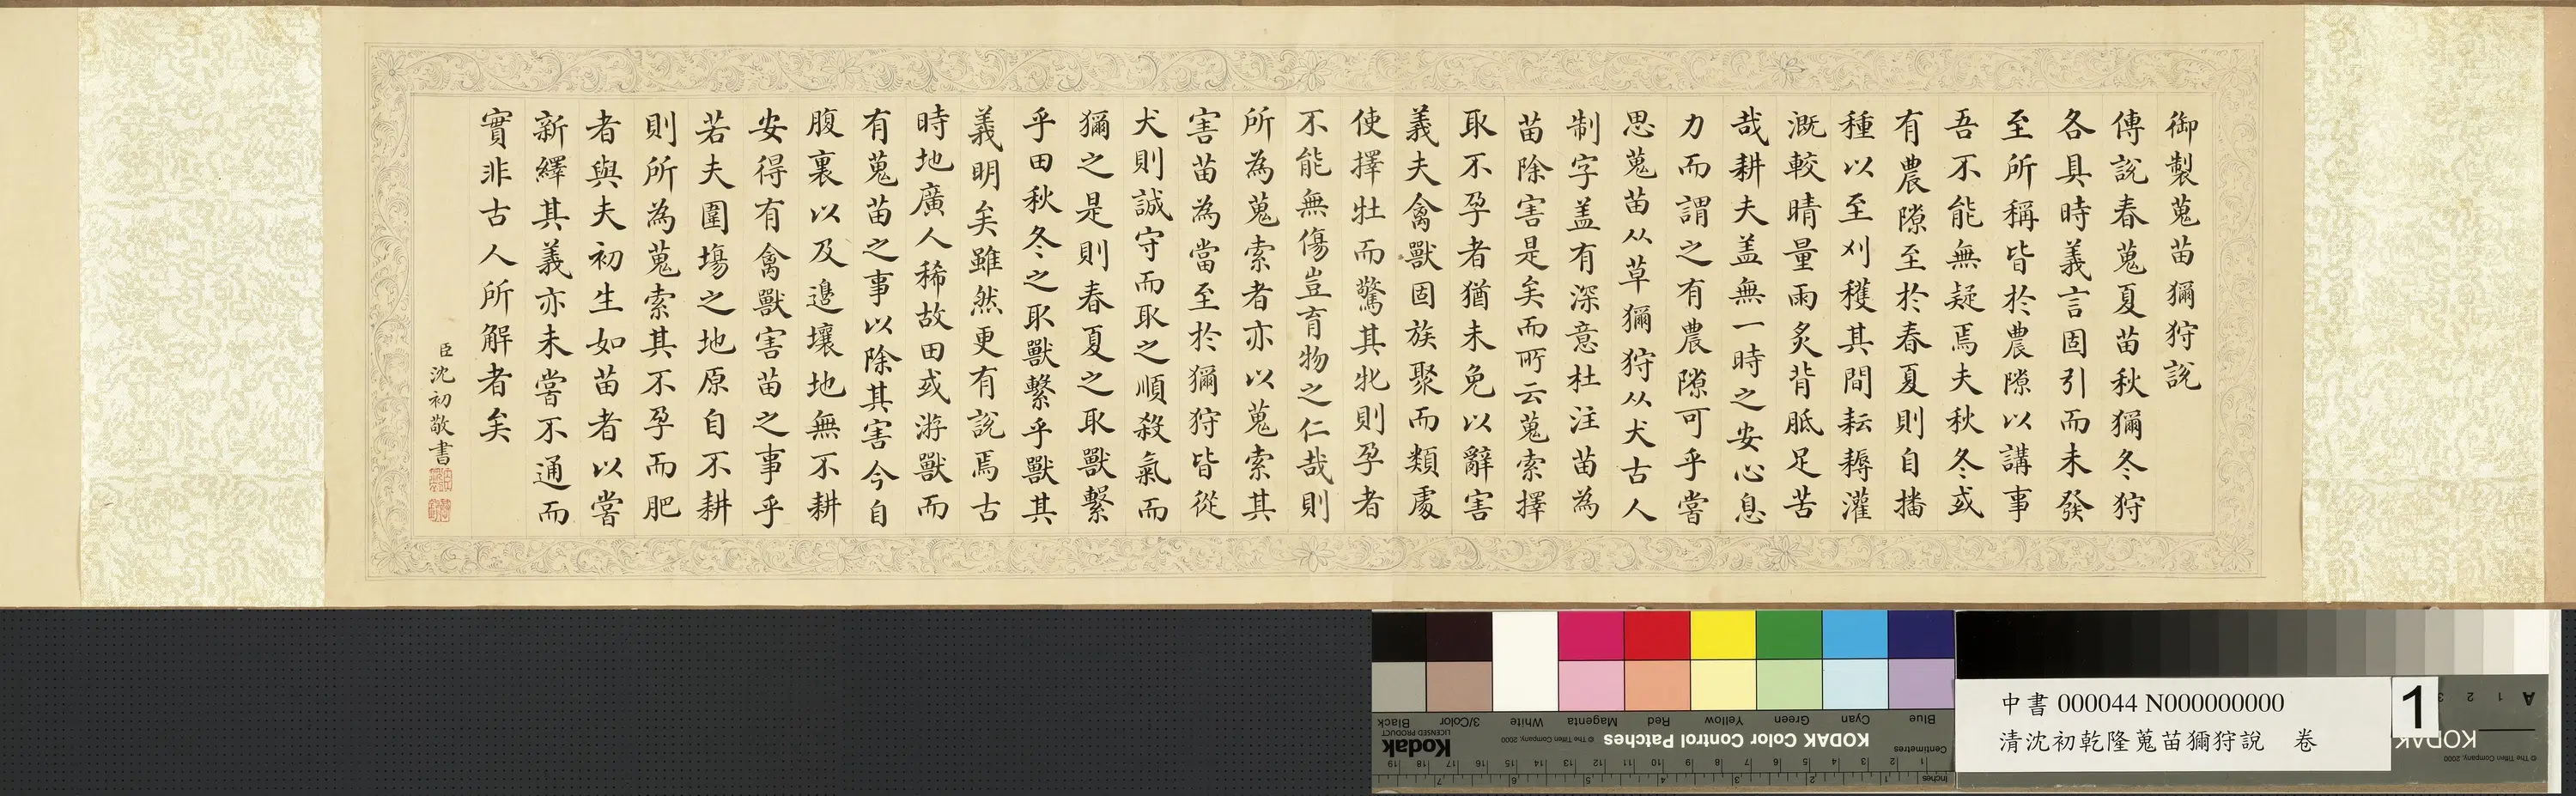 御製蒐苗獮狩說
傳說春蒐夏苗秋獮冬狩
各具時義言固引而未發
至所稱皆於農隙以講事
吾不能無疑焉夫秋冬或
有農隙至於春夏則自播
種以至刈穫其間耘耨灌
溉較晴量雨炙背胝足苦
哉耕夫盖無一時之安心息
力而謂之有農隙可乎嘗
思蒐苗从草獮狩从犬古人
制字盖有深意杜注苗為
苗除害是矣而所云蒐索擇
取不孕者猶未免以辭害
義夫禽獸固族聚而類處
使擇牡而驚其牝則孕者
不能無傷豈育物之仁哉則
所為蒐索者亦以蒐索其
害苗為當至於獮狩皆從
犬則誠守而取之順殺氣而
獮之是則春夏之取獸繫
乎田秋冬之取獸繫乎獸其
義明矣雖然更有說焉古
時地廣人稀故田或游獸而
有蒐苗之事以除其害今自
腹裏以及邊壤地無不耕
安得有禽獸害苗之事乎
若夫圍場之地原自不耕
則所為蒐索其不孕而肥
者與夫初生如苗者以嘗
新繹其義亦未嘗不通而
實非古人所解者矣
臣沈初敬書
中書 000044 N000000000
清沈初乾隆蒐苗獮狩說 卷
1
KODAK Color Control Patches
© The Tiffen Company, 2000
Kodak
LICENSED PRODUCT
Blue Cyan Green Yellow Red Magenta White 3/Color Black
Centimetres
1 2 3 4 5 6 7 8 9 10 11 12 13 14 15 16 17 18 19
Inches
KODAK
© The Tiffen Company, 2000
A 1 2 3